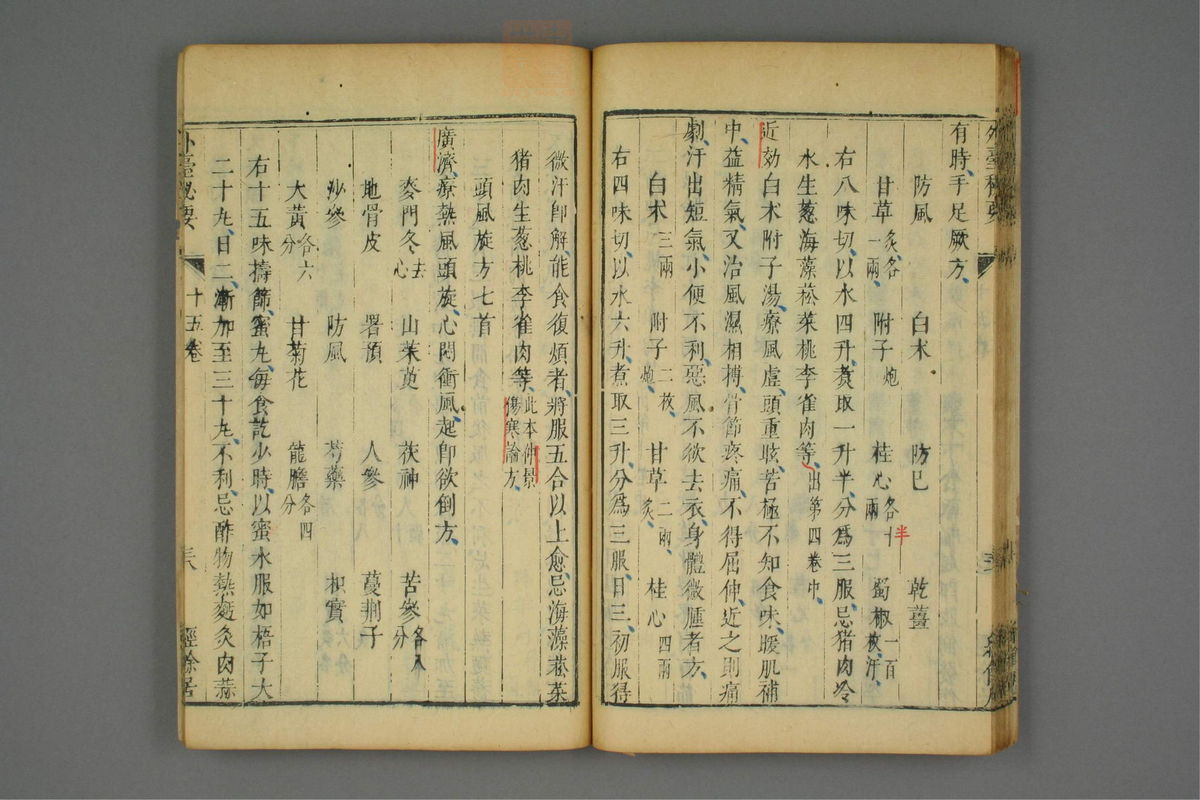 有時手足厥方
防風 白术 防巳 乾薑
甘草炙各一兩 附子炮 桂心各半兩 蜀椒一百枚汗
右八味切以水四升煮取一升半分爲三服忌猪肉冷
水生葱海藻菘菜桃李雀肉等出第四卷中
近効白术附子湯療風虛頭重眩苦極不知食味暖肌補
中益精氣又治風濕相搏骨節疼痛不得屈伸近之則痛
劇汗出短氣小便不利惡風不欲去衣身體微腫者方
白术三兩 附子二枚炮 甘草二兩炙 桂心四兩
右四味切以水六升煮取三升分爲三服日三初服得
微汗卽解能食復煩者將服五合以上愈忌海藻菘菜
猪肉生葱桃李雀肉等此本仲景傷寒論方
頭風旋方七首
廣濟療熱風頭旋心悶衝風起卽欲倒方
麥門冬去心 山茱萸 茯神 苦參各八分
地骨皮 署預 人參 蔓荆子
沙參 防風 芍藥 枳實
大黃各六分 甘菊花 龍膽各四分
右十五味擣篩蜜丸每食訖少時以蜜水服如梧子大
二十丸日二漸加至三十丸不利忌酢物熱麪炙肉蒜
外臺秘要 十五卷 經餘居